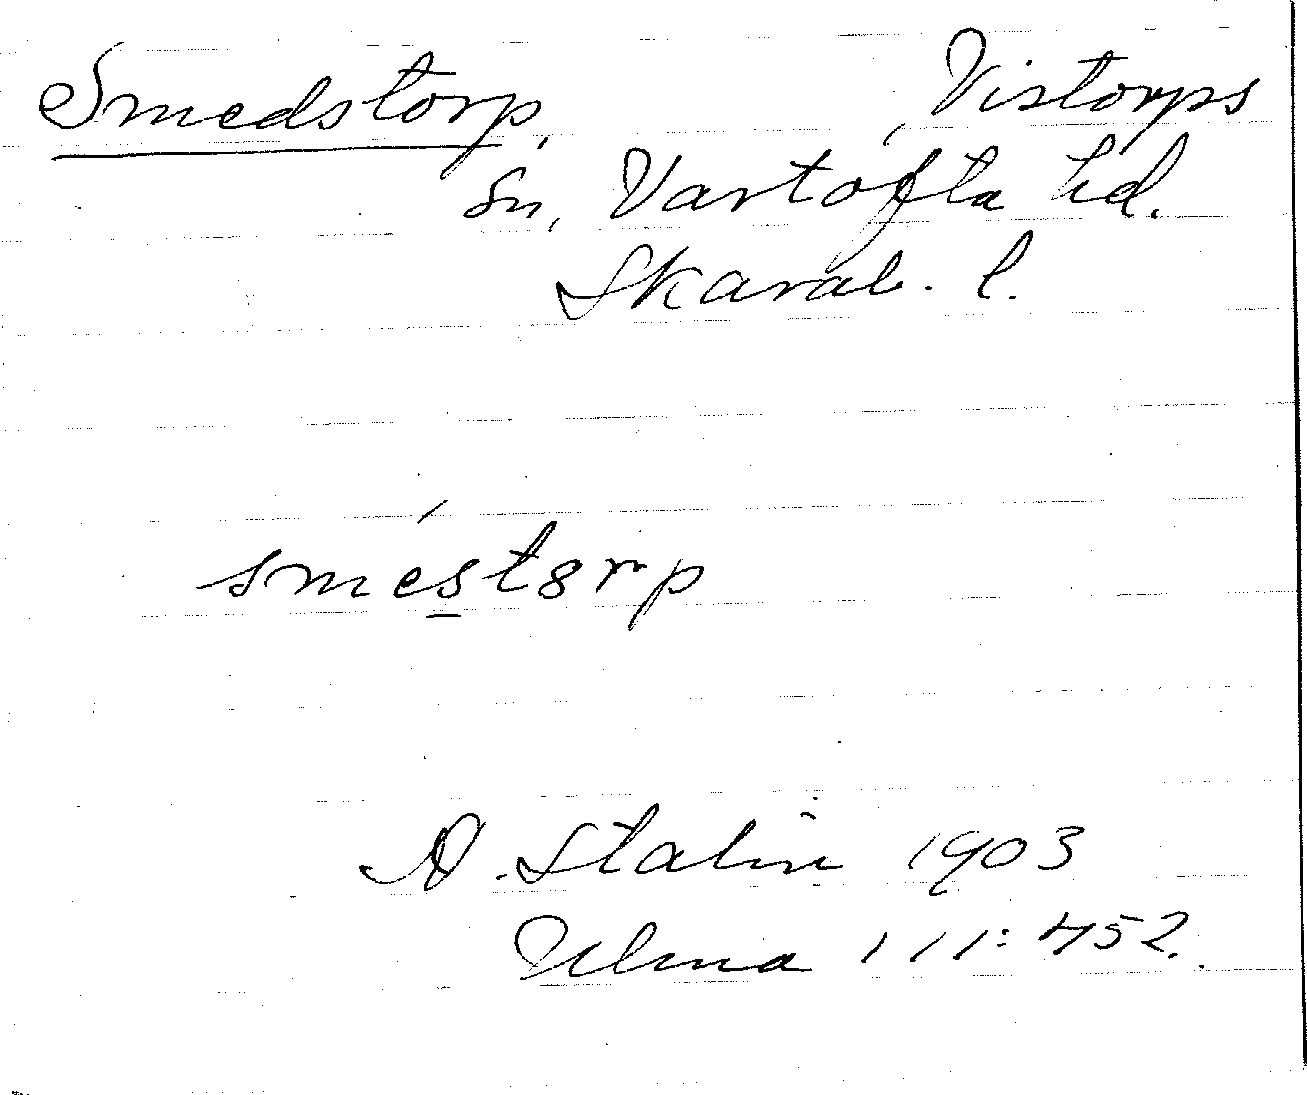 Smedstorp, Vistorps
sn, Vartofta hd.
Skarab. l.
sméstorp
A. Stalin 1903
Ulma 111:452.